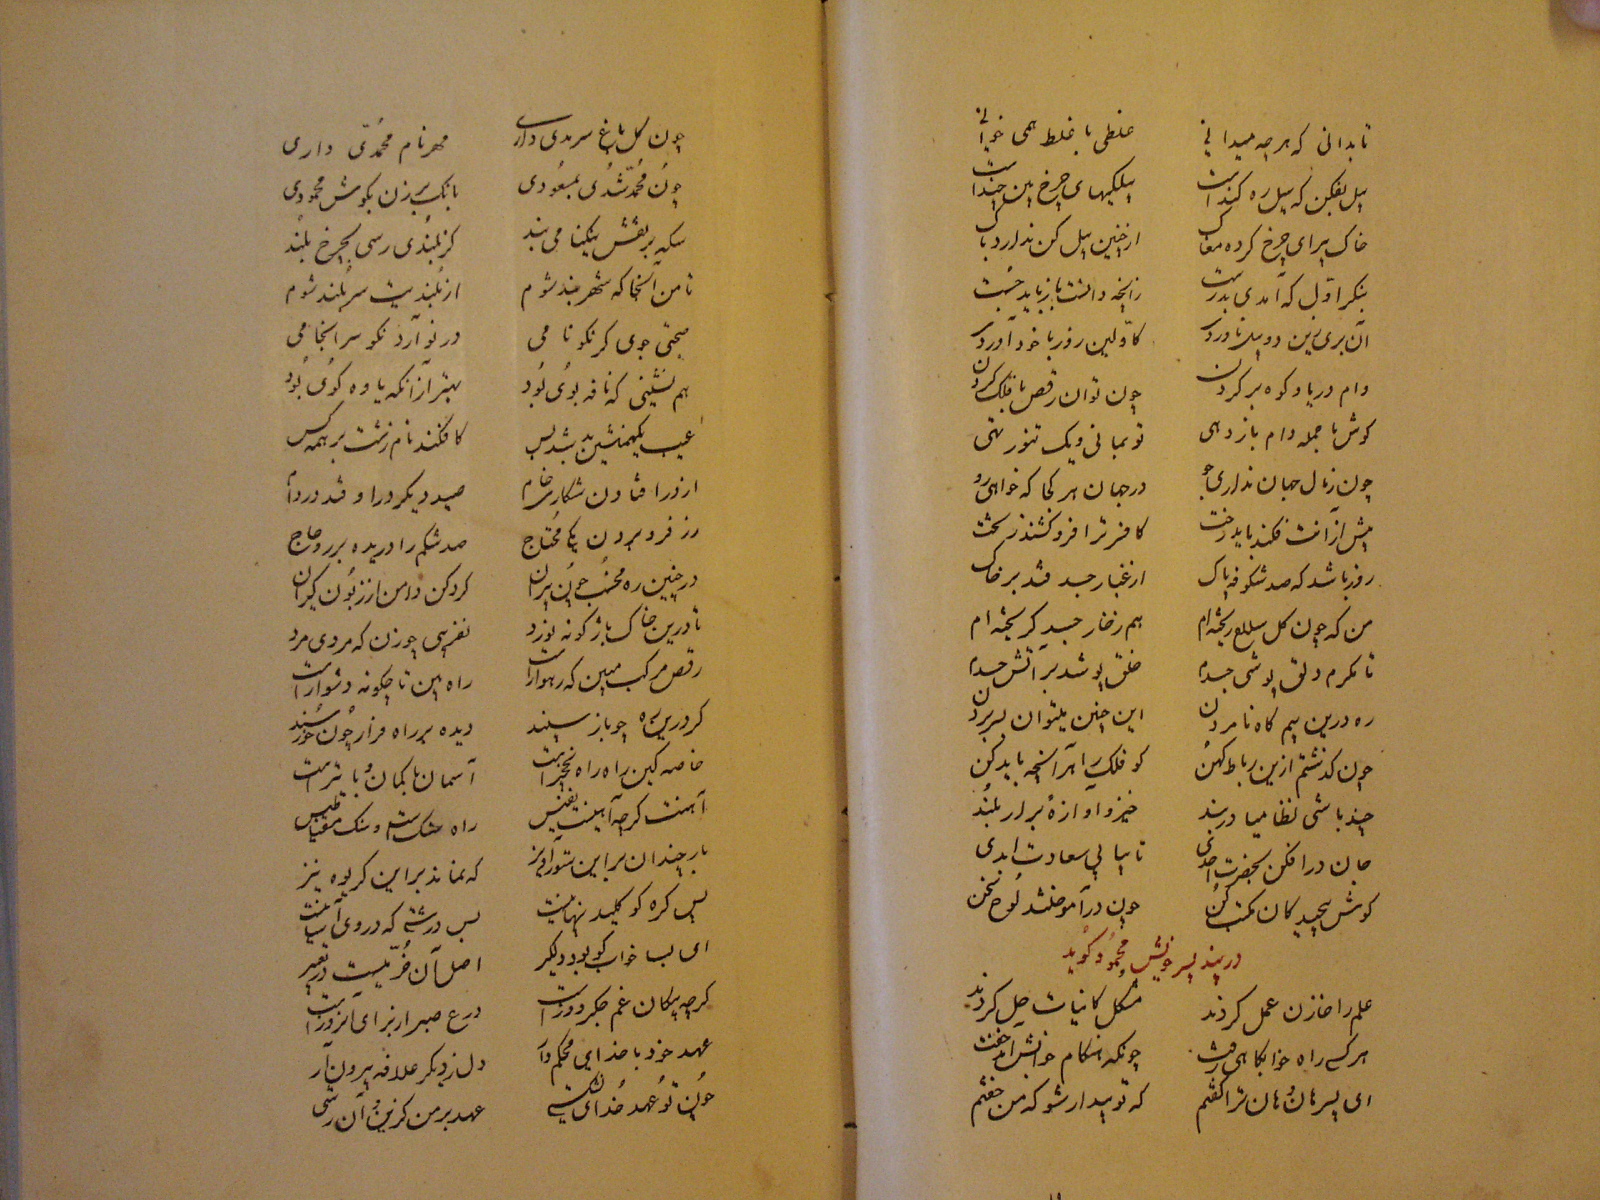 تا بدانی که هر چه میدانی غلطی یا غلط همی خوانی
پیل بفکن که سیل ره کندست پیلکیهای چرخ بین چندست
خاک پیرای چرخ کرده مغاک از چنین پیل کن ندارد باک
بنگر اول که آمدی بدرست زانچه داشت باز باید جست
آن بری زین دو پیک ناورد کاولین روز با خود آورد
وام دریا و کوه بر کردن چون توان رقص با فلک کردن
کوش تا جمله وام باز دهی تو بمانی و یک ستور تهی
چون ز مال جهان نداری جو در جهان هر کجا که خواهی رو
پیش از آنت فکند باید رخت کافسرت را فرو کشند ز تخت
روز باشد که صد شکوفه پاک از غبار حسد فتد بر خاک
من که چون گل سلاح ریخته ام هم ز خار حسد گریخته ام
تا مگرم دلق پوشی جسدم طلق پوشد بر آتش حسدم
ره درین بیم گاه تا مردن این چنین میتوان بسر بردن
چون گذشتم ازین رباط کهن گو فلک را هر آنچه باید کن
چند باشی نظامیا در بند خیز و آوازه برآر بلند
جان در افکن بحضرت احدی تا بیابی سعادت ابدی
گوش پیچیدگان مکتب کن چون در آموختند لوح سخن
در پند پسر خویش محمود گوید
علم را خازن عمل کردند مشکل کاینات حل کردند
هر کسی راه خوابگاهی رفت چونکه هنگام خوابش آمد خفت
ای پسر هان و هان ترا گفتم که تو بیدار شو که من خفتم
چون گل باغ سرمدی داری مهر نام محمدی داری
چون محمد شدی بمسعودی بانگ بر زن بکوس محمودی
سکه بر نقش نیکنامی بند کز بلندی رسی بچرخ بلند
تا من آنجا که شهر بند شوم از بلندیت سر بلند شوم
صحبتی جوی کز نکو نامی در تو آرد نکو سرانجامی
هم نشینی که نافه بوی بود بهتر از آنکه یاوه گوی بود
عیب یکهمنشین بد شد بس کافکند نام زشت بر همه کس
از در افتادن شکاری خام صید دیگر در او فتد در دام
زر فرو بردن یکی محتاج صد شکم را دریده بر رواج
در چنین ره مخسب چون پیران گرد کن دامن از زبون گیران
تا درین خاک باژگونه نورد نفریبی چو زن که مردی مرد
رقص مرکب مبین که رهوارست راه بین تا چگونه دشوارست
گر درین ره چو باز سپید دیده بر راه دار چون خورشید
خاصه کین راه راه نخچیرست آسمان با کمان و با تیرست
آهنت گرچه آهنیست نفیس راه سنگست و سنگ مقناطیس
بار چندان بر این ستور آویز که نماند بر این گریوه تیز
بس گره کو کلید پنهانیست پس درشتی که در وی آسانیست
ای بسا خواب کو بود دلگیر اصل آن خرمیست در تعبیر
گرچه پیکان غم جگر دوزست درع صبر از برای این روزست
عهد خود با خدای محکم دار دل ز دیگر علاقه بیرون آر
چون تو عهد خدای نشکستی عهده بر من کزین و آن رستی